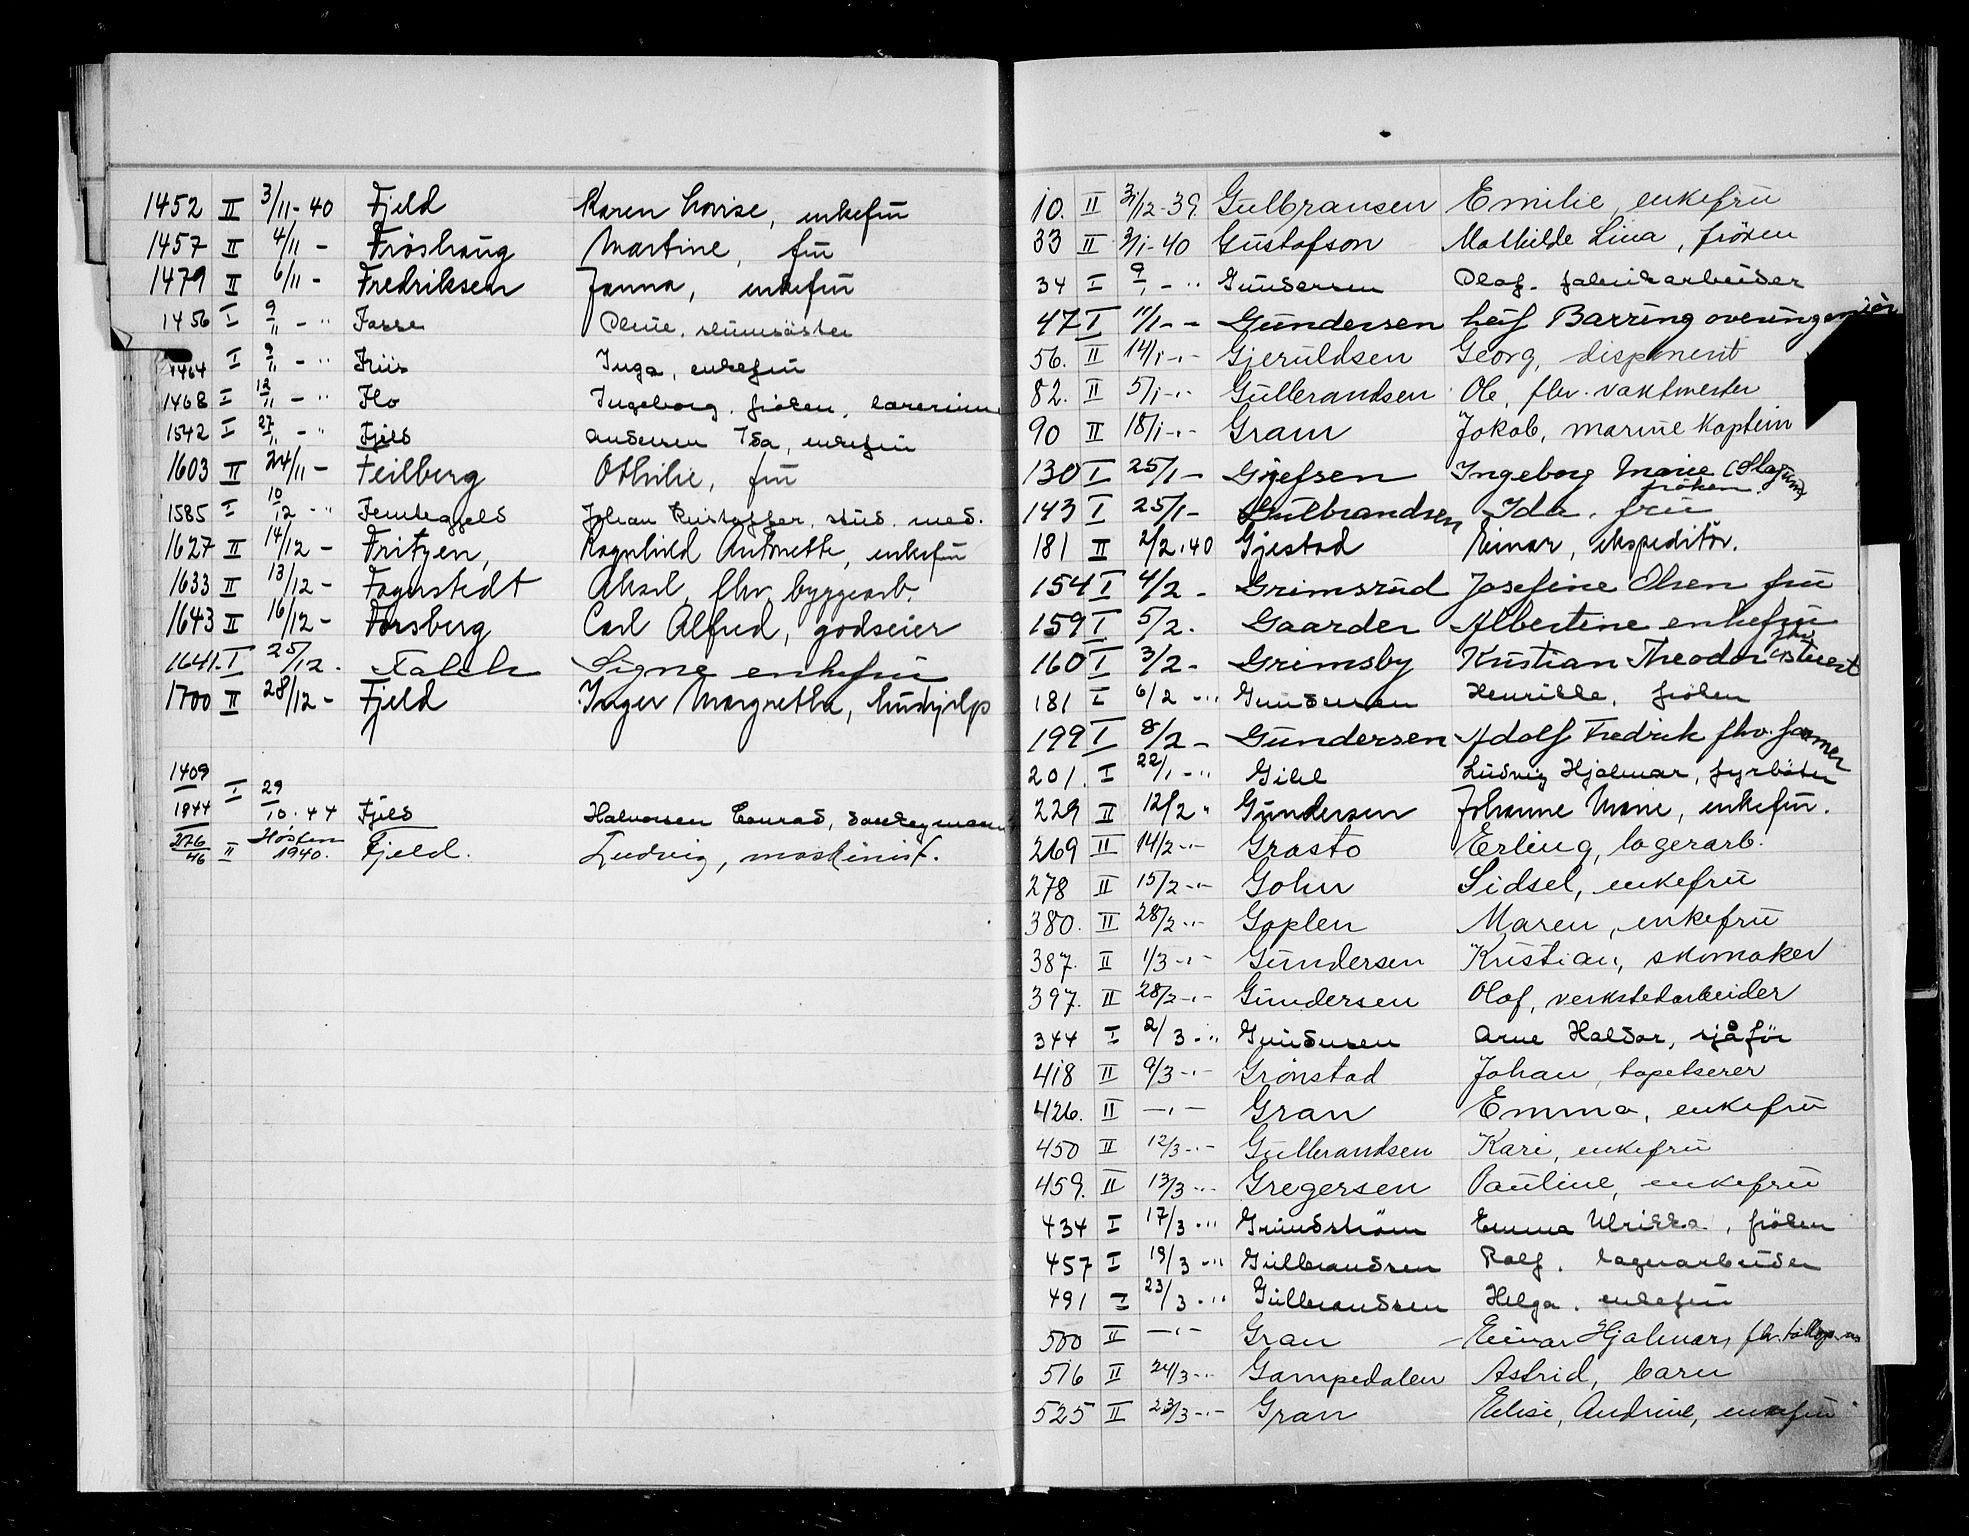 1452 II 3/11-40 Fjeld Karen Lovise, enkefru
1457 II 4/11 - Frøshaug Martine, fru
1479 II 6/11 - Fredriksen Janna, enkefru
1456 I 9/11 - " Fasse
1464 I 9/11 - " Friis Inga, enkefru
1468 I 12/11 - " Flo Ingeborg, frøken,
1542 I 27/11 - " Fjeld Andersen Ida, enkefru
1603 II 24/11 - Feilberg Othilie, fru
1585 I 10/12 - " Johan Kristoffer, stud. med.
1627 II 14/12 - Fritzen, Ragnhild Antonette, enkefru
1633 II 13/12 - Fagerstedt Aksel, fhv. byggearb.
1643 II 16/12 - Forsberg Carl Alfred, godseier
1641. I 25/12. Falch Signe enkefru
1700 II 28/12 - Fjeld Inger Margrethe, hushjelp
1409/1844 I 29/10.44 Fjeld Halvorsen Conrad,
276/46 II Høsten 1940. Fjeld. Ludvig, maskinist.
10. II 31/12-39. Gulbransen Emilie, enkefru
33 II 2/1-40 Gustafson Mathilde Lina, frøken
34 I 9/1 - " Gundersen Olaf. fabrikarbeider
47 I 11/1 - - Gundersen Leif Barring overingeniør
56. II 14/1 -"- Gjeruldsen Georg, disponent
82. II 5/1 -"- Gulbrandsen Ole, fhv. vaktmester
90 II 18/1 -"- Gram Jakob, marine kaptein
130 I 25/1 - Ingeborg Marie frøken.
143 I 25/1 - Gulbrandsen Ida, fru
181 II 2/2.40 Gjestad Einar, ekspeditør.
154 I 4/2 - Grimsrud Josefine Olsen fru
159 I 5/2. Gaarder Albertine enkefru
160 I 3/2 - Grimsby Kristian Theodor fhv.
181 I 6/2 -"- Gundersen Henrikke, frøken
199 I 8/2 - Gundersen Adolf Fredrik fhv. farmer
201. I 22/1 -" Gihl Ludvig Hjalmar, fyrbøter
229 II 12/2 " Gundersen Johanne Marie, enkefru.
269 II 14/2 -"- Grasto Erling, lagerarb.
278 II 15/2 -"- Gohn Sidsel, enkefru
380. II 28/2 -"- Goplen Maren, enkefru
387. II 1/3 -"- Gundersen Kristian, skomaker
397. II 28/2 -"- Gundersen Olaf, verkstedarbeider
344 I 2/3 -" Gundersen Arne Haldor, sjåfør
418 II 9/3 -"- Grønstad Johan, tapetserer
426. II -"- Gran Emma, enkefru
450 II 12/3 -"- Gulbrandsen Kari, enkefru
459. II 13/3 -"- Gregersen Pauline, enkefru
434 I 17/3 -" Grundstrøm Emma Ulrikka, frøken
457 I 19/3 -" Gulbrandsen Rolf, lagerarbeider
491 I 23/3 -" Gulbrandsen Helga, enkefru
500 II -"- Gran Einar Hjalmar, fhv.
516 II 24/3 -"- Gampedalen Astrid, barn
525 II 23/3 -"- Gran Elise, Andrine, enkefru